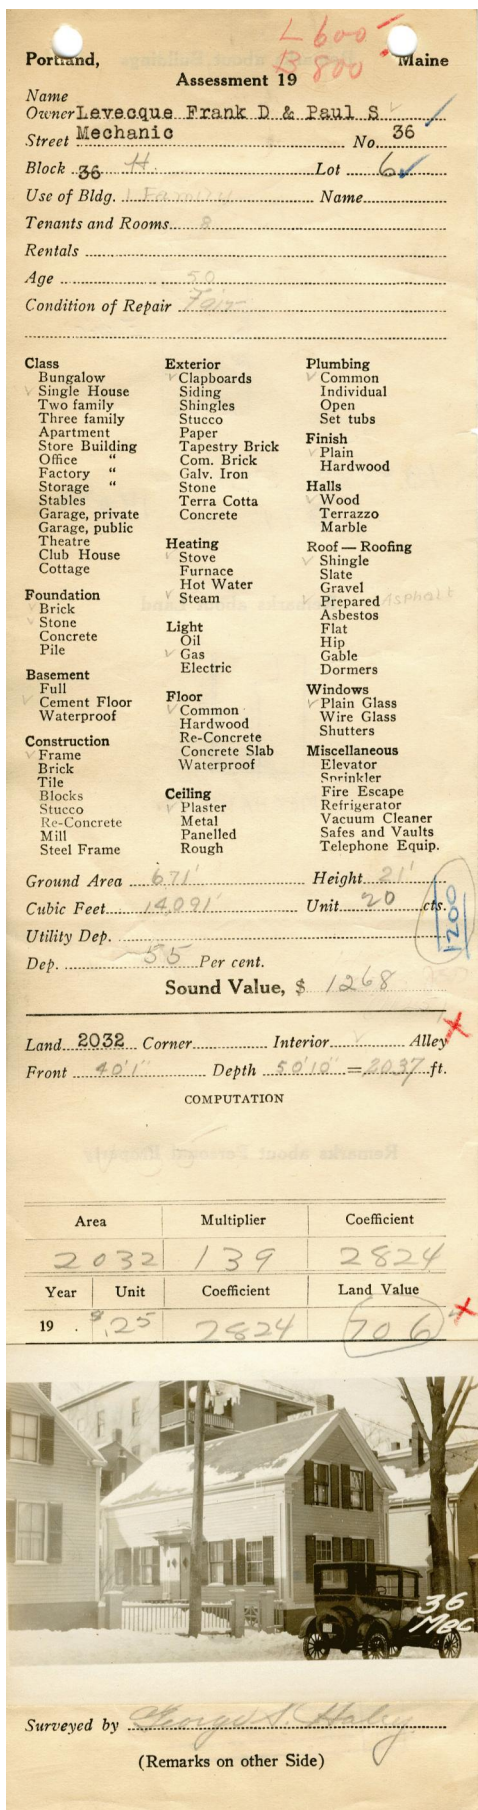 L 600
B 800
Portland, Maine
Assessment 19
Name
Owner Levecque Frank D & Paul S
Street Mechanic No. 36
Block 36 H Lot 6
Use of Bldg. 1 Family Name
Tenants and Rooms 8
Rentals
Age 50
Condition of Repair Fair
Class
Bungalow
Single House
Two family
Three family
Apartment
Store Building
Office "
Factory "
Storage "
Stables
Garage, private
Garage, public
Theatre
Club House
Cottage
Foundation
Brick
Stone
Concrete
Pile
Basement
Full
Cement Floor
Waterproof
Construction
Frame
Brick
Tile
Blocks
Stucco
Re-Concrete
Mill
Steel Frame
Exterior
Clapboards
Siding
Shingles
Stucco
Paper
Tapestry Brick
Com. Brick
Galv. Iron
Stone
Terra Cotta
Concrete
Heating
Stove
Furnace
Hot Water
Steam
Light
Oil
Gas
Electric
Floor
Common
Hardwood
Re-Concrete
Concrete Slab
Waterproof
Ceiling
Plaster
Metal
Panelled
Rough
Plumbing
Common
Individual
Open
Set tubs
Finish
Plain
Hardwood
Halls
Wood
Terrazzo
Marble
Roof — Roofing
Shingle
Slate
Gravel
Prepared Asphalt
Asbestos
Flat
Hip
Gable
Dormers
Windows
Plain Glass
Wire Glass
Shutters
Miscellaneous
Elevator
Sprinkler
Fire Escape
Refrigerator
Vacuum Cleaner
Safes and Vaults
Telephone Equip.
Ground Area 671' Height 21'
Cubic Feet 14,091' Unit 20 cts.
1200
Utility Dep.
Dep. 55 Per cent.
Sound Value, $ 1268
Land 2032 Corner Interior Alley
Front 40'1" Depth 50'10" = 2037 ft.
COMPUTATION
Area Multiplier Coefficient
2032 139 2824
Year Unit Coefficient Land Value
19 $.25 2824 706
36
Mec
Surveyed by George S. Haley
(Remarks on other Side)